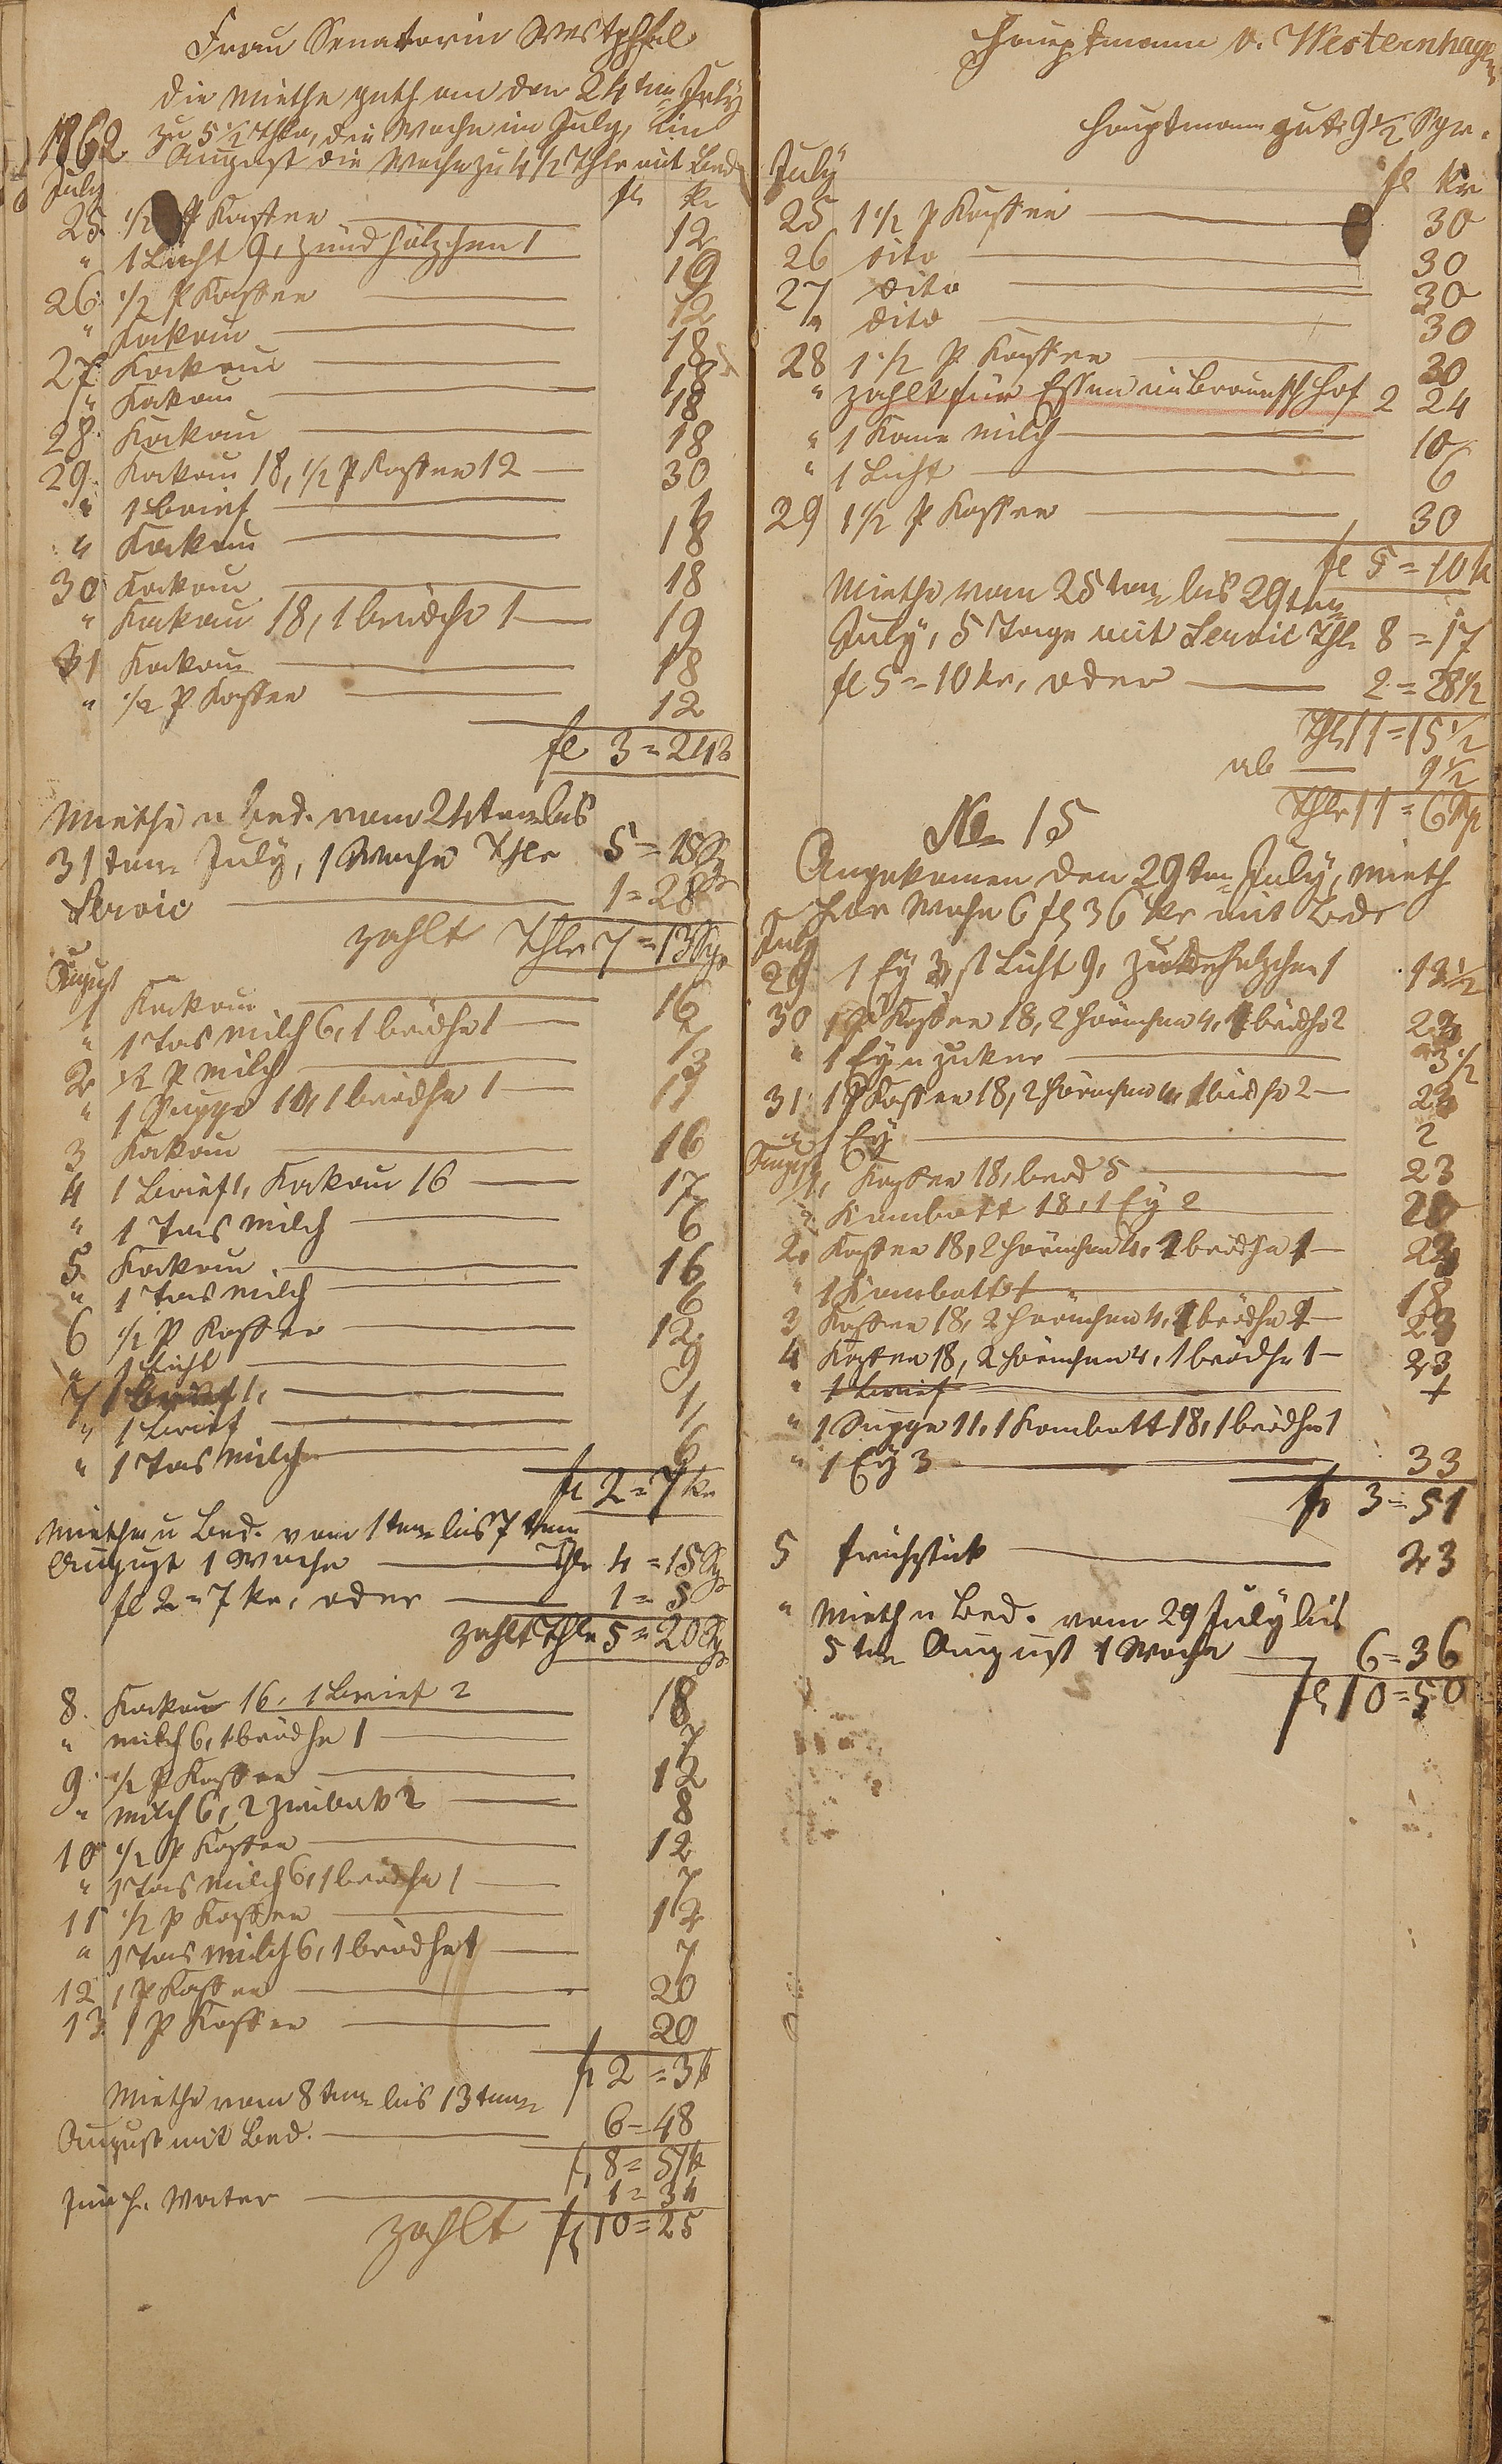 Frau Senatorin Westphal
die Miethe geth an den 24ten July
zu 5 1/2 Thlr, die Woche im July, im
August die Woche zu 4 1/2 Thlr mit Bed
1862
July fl kr
25 1/2 P Kaffee 12
" 1 Licht 9, Zündhölzchen 1 10
26 1/2 P Kaffee 12
" Kakau 18
27 Kakau 18
" Kakau 18
28 Kakau 18
29 Kakau 18, 1/2 P Kaffee 12 30
" 1 Brief 1
" Kakau 18
30 Kakau 18
" Kakau 18, 1 brödche 1 19
31 Kakau 18
" 1/2 P Kaffee 12
fl 3 = 42
Miethe u Bed. vom 24ten bis
31ten July, 1 Woche Thlr 5 = 15 Sgr
Servic 1 = 28
zahlt Thlr 7 = 13 Sgr
August
1 Kakau 16
" 1 Tas Milch 6, 1 brödche 1 7
2 1/2 P Milch 3
" 1 Suppe 10, 1 brödche 1 11
3 Kakau 16
4 1 Brief 1, Kakau 16 17
" 1 Tas Milch 6
5 Kakau 16
" 1 Tas Milch 6
6 1/2 P Kaffee 12
" 1 Licht 9
7 1 Brief 1, 1
" 1 Brief 1
" 1 Tas Milch 6
fl 2 = 7 kr
Miethe u Bed. vom 1ten bis 7ten
August 1 Woche Thlr 4 = 15 Sgr
fl 2 = 7 kr, oder 1 = 5
zahlt Thlr 5 = 20 Sgr
8. Kakau 16, 1 Brief 2 18
" Milch 6, 1 brödche 1 7
9 1/2 P Kaffee 12
" Milch 6, 2 Zwiback 2 8
10 1/2 P Kaffee 12
" 1 Tas Milch 6, 1 brödche 1 7
11 1/2 P Kaffee 12
" 1 Tas Milch 6, 1 brödche 1 7
12 1 P Kaffee 20
13 1 P Kaffee 20
fl 2 = 3 k
Miethe vom 8ten bis 13ten
August mit Bed. 6 = 48
fl 8 = 51 k
H. Water 1 = 34
zahlt fl 10 = 25
Hauptmann v. Westernhagen
Hauptmann gute 9 1/2 Sgr.
July fl kr
25 1 1/2 P Kaffee 30
26 dito 30
27 dito 30
" dito 30
28 1 1/2 P Kaffee 30
" zahlt für Essen im Braunsch Hof 2 24
" 1 Kane Milch 10
" 1 Licht 6
29 1 1/2 P Kaffee 30
fl 5 = 10 k
Miethe vom 25ten bis 29ten
July, 5 Tage mit Servic Thl. 8 = 17
fl 5 = 10 kr, oder 2 = 28 1/2
Thlr 11 = 15 1/2
ab 9 1/2
Thlr 11 = 6 Sgr
No 15
Angekomen den 29ten July, Mieth
per Woche 6 fl 36 kr mit Bed
July
29 1 Ey 3 1/2 Licht 9, 1 13 1/2
30 1 P Kaffee 18, 2 Hörnchen 4, brödche 2 23
" 1 Ey u Zuker 3 1/2
31 1 P Kaffee 18, 2 Hörnchen 4, 1 brödche 2 23
" 1 Ey 2
August 1, Kaffee 18, brod 5 23
" Kombott 18, 1 Ey 2 20
2. Kaffee 18, 2 Hörnchen 4, 1 brödche 1 23
" 1 Kombott 18
3 Kaffee 18, 2 Hörnchen 4, 1 brödche 1 23
4 Kaffee 18, 2 Hörnchen 4, 1 brödche 1 23
" 1 Brief
" 1 Suppe 11, 1 Kombott 18, 1 brödche 1
" 1 Ey 3 33
fl 3 = 51
5 Frühstück 23
" Mieth u Bed. vom 29 July bis
5ten August 1 Woche 6 = 36
fl 10 = 50